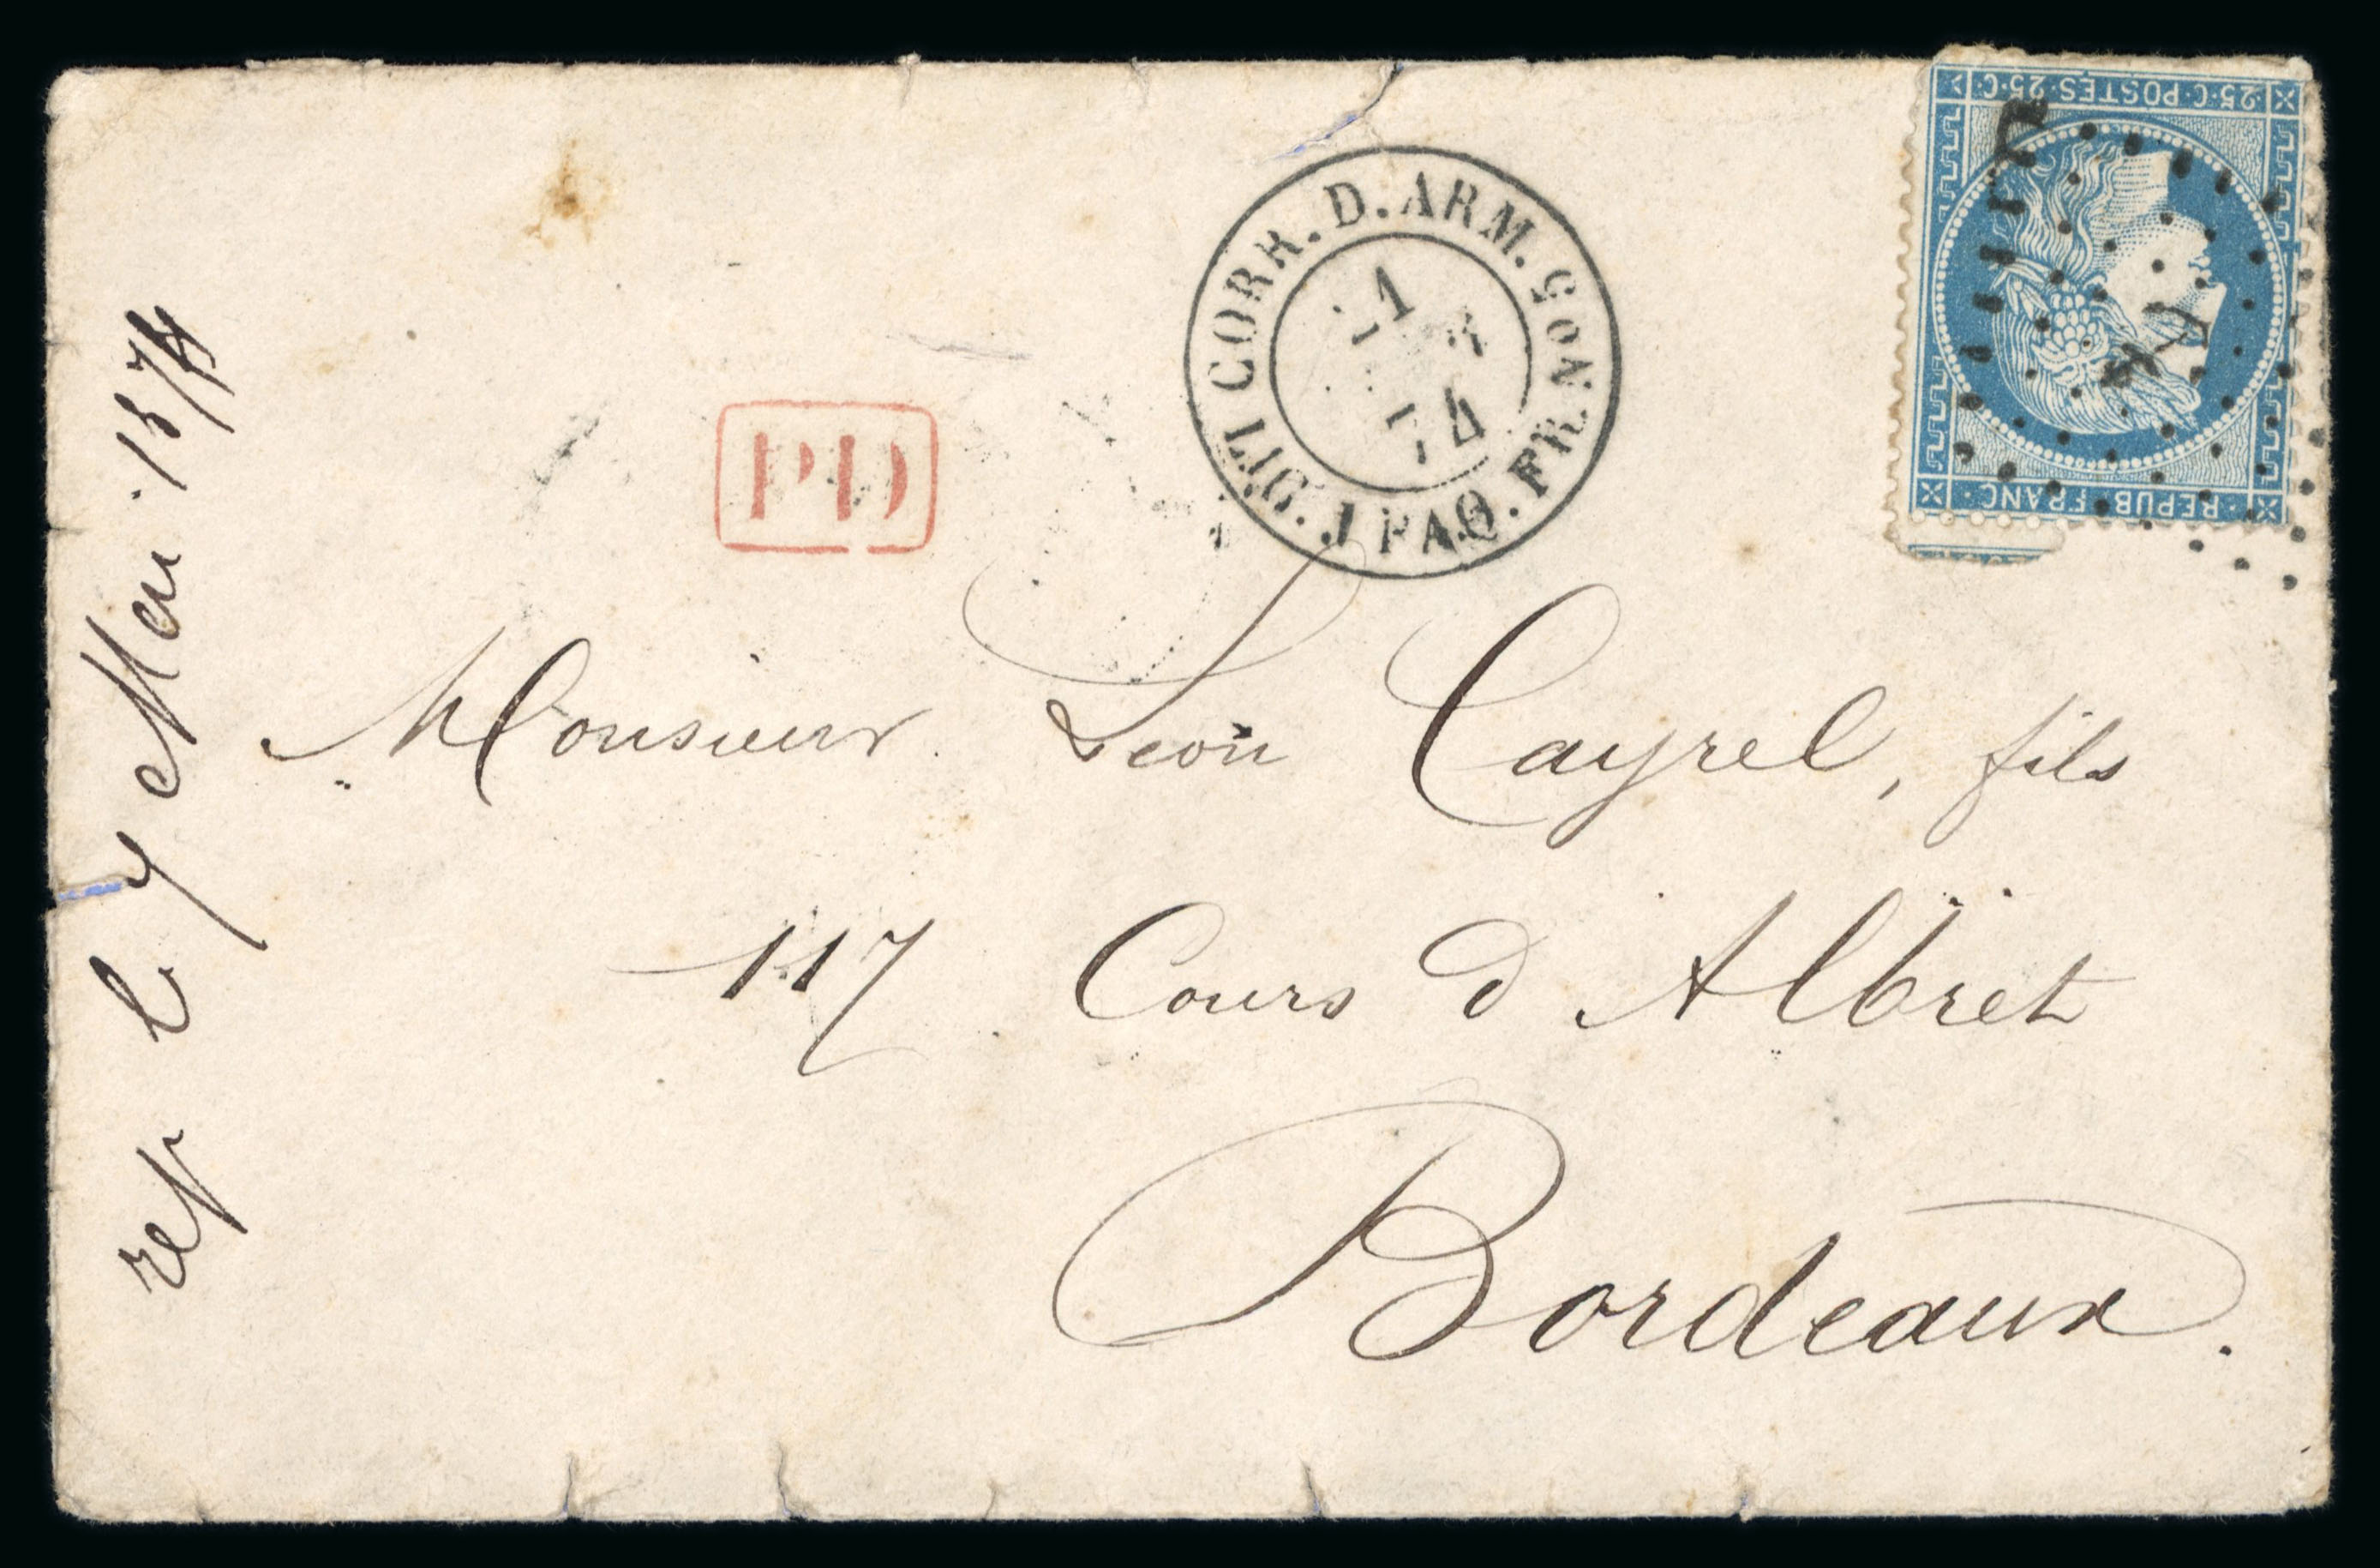 25·C·POSTES·25·C
REPUB·FRANC·
CORR. D. ARM. Gon
LIG. J PAQ. FR. N
1
74
PD
Monsieur Leon Cayrel, fils
117 Cours d'Albret
Bordeaux.
rep le 7 Mai 1874